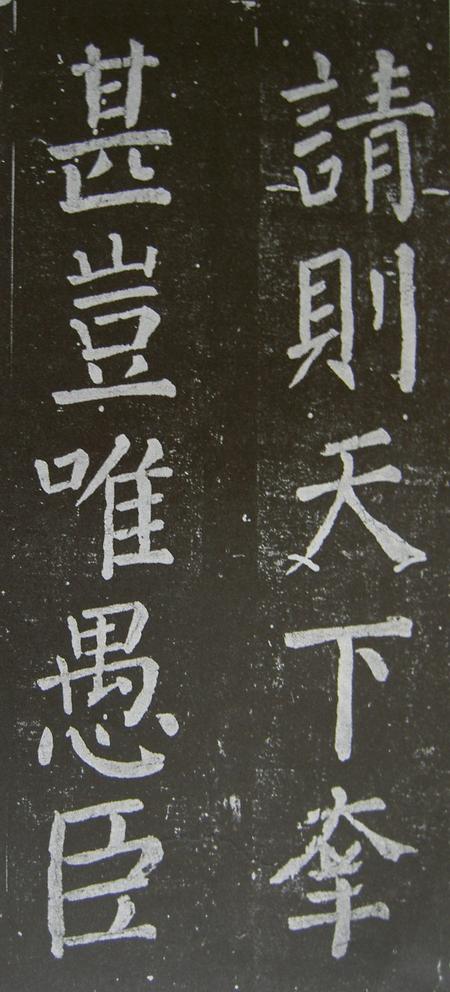 請則天下幸
甚豈唯愚臣